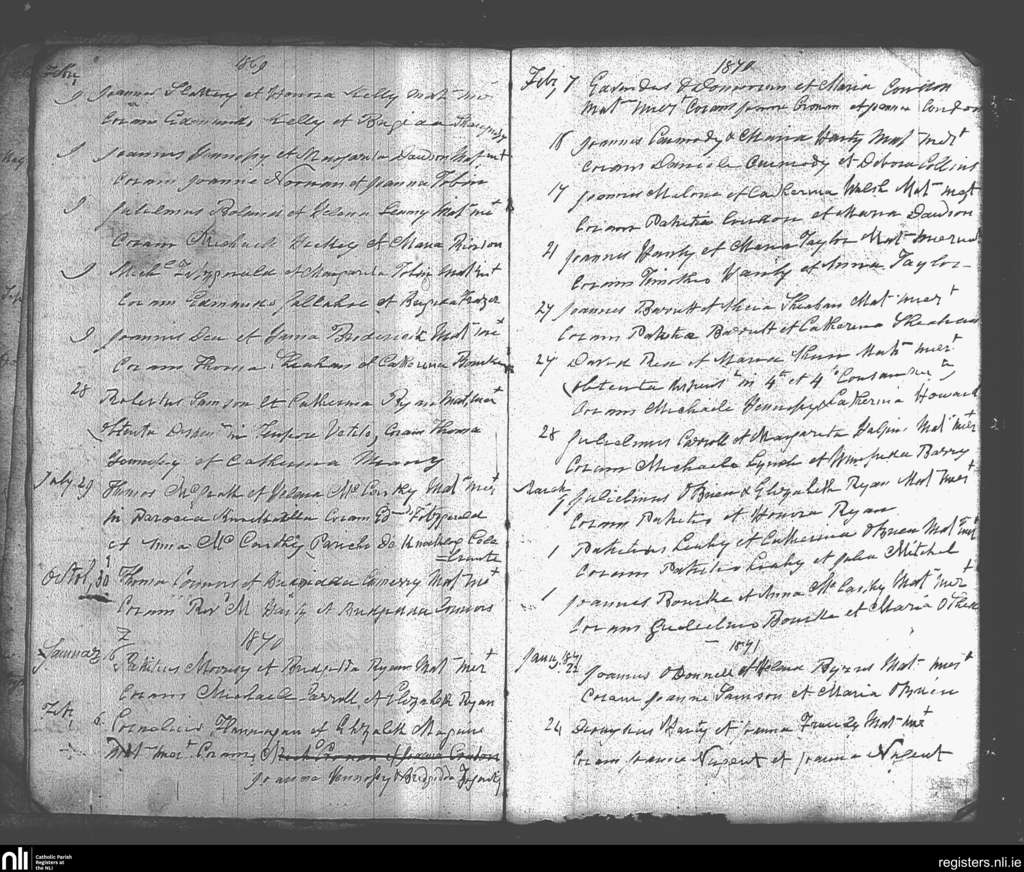 1869
Feby
9 Joannes Slattery et Honora Kelly Mat. int
Coram Edmundo Kelly et Brigida
9 Joannes Hennessy et Margarita Dawson Mat. int
Coram Joanne Noonan et Joanna Tobin
9 Gulielmus Boland et Helena Leamy Mat. int
Coram Michaele Hickey et Maria
9 Michl Fitzgerald et Margarita Tobin Mat. int
Coram Edmundo Gallahue et Brigida Frazer
9 Joannes Dea et Anna Mat. int
Coram Thoma Sheahan et Catherina Bourke
28 Robertus Samson et Catherina Ryan Mat. iner
Obtenta Dispen in Tempore Vetito, Coram Thoma
Hennessy et Catherina
July 29 Thomas McGrath et Helena McCarthy Mat. iner
in Parocia Coram Ed Fitzgerald
et Anna McCarthy Parocho De
Octob, 30 Thoma Connors et Brigidda Mat. int
Coram Revd M Hanly et Bridgidda Connors
1870
January Patricius Mooney et Bridgidda Ryan Mat. iner
Coram Michaele Carroll et Elizabeth Ryan
Feby 6 Cornelius Hannagan et Elizabeth Maguire
Mat. iner Coram
Joanna Hennessy & Bridgidda Fogarty
1870
Feby 7 Edmundus O Donnovan et Maria Condon
Mat. iner Coram Joanne Cronan et Joanna Condon
18 Joannes Carmody & Maria Hanly Mat. iner
Coram Daniele Carmody et Debora Collins
17 Joannes Malone et Catherina Walsh Mat. int
Coram Patritio Condon et Maria Dawson
21 Joannes Hanly et Maria Taylor Mat. inierunt
Coram Timotheo Hanly et Anna Taylor
27 Joannes Barrett et Alicia Sheahan Mat. inier
Coram Patritio Barrett et Catherina Sheahan
27 David Rea et Maria Mat. iner
(obtenta Dispens in 4to et 4to Consang
Coram Michaele Hennessy & Catherina Howard
28 Gulielmus Carroll et Margarita Halpin Mat. iner
Coram Michaele Lynch et Winifrida Barry
March
1 Gulielmus O'Brien & Elizabeth Ryan Mat. iner
Coram Patritio et Honora Ryan
1 Patritius Leahy et Catherina O'Brien Mat. iner
Coram Patritio Leahy et Julia Mitchel
1 Joannes Bourke et Anna McCarthy Mat. iner
Coram Gulielmo Bourke et Maria O'Shea
1871
Jany 1871
22 Joannes O'Donnell et Helena Byrns Mat. iner
Coram Joanne Samson et Maria O'Brien
24 Dionysius Hanly et Joanna Franzes Mat. int
Coram Joanne Nugent et Joanna Nugent
nli
Catholic Parish
Registers at
the NLI
registers.nli.ie